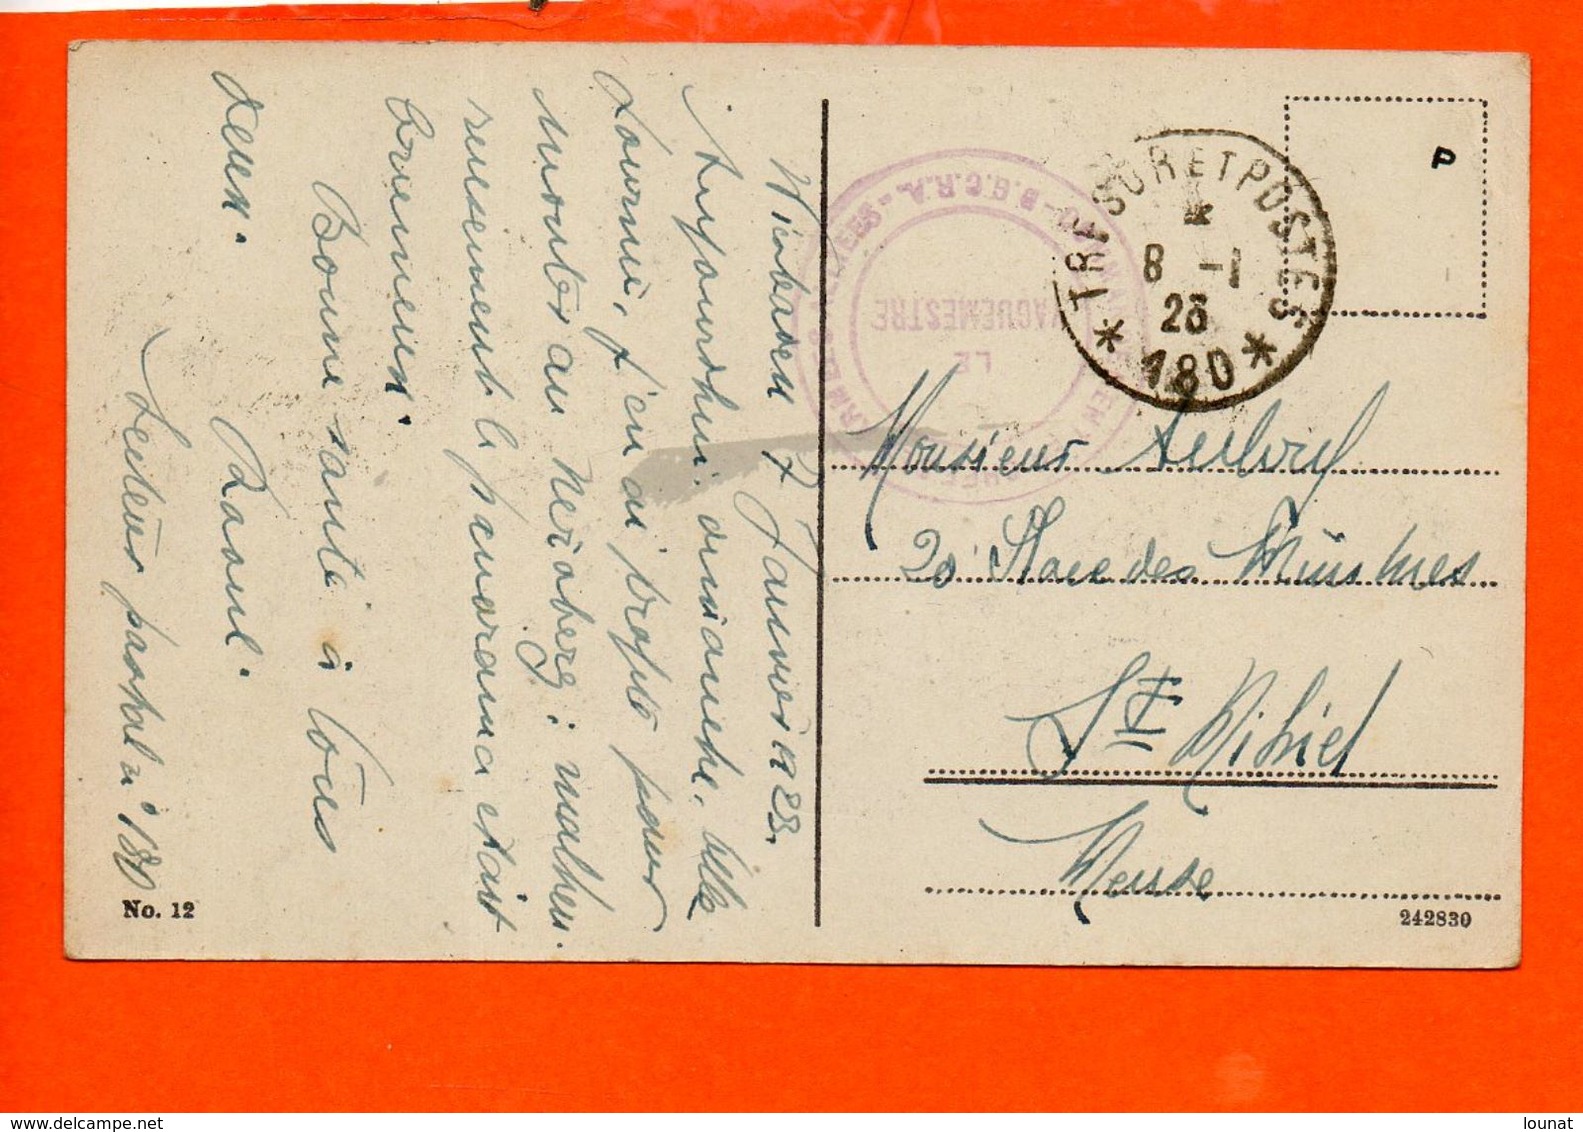 Wiesbaden 7 Janvier 1923.
Aujourdhui dimanche, ville
fournie, j'en ai profité pour
monter au Neroberg; malheu-
reusement le panorama était
brumeux.
Bonne santé à tous
deux.
Raoul.
Secteur postal n° 180
No. 12
TRESOR ET POSTES
8 -1
23
* 180 *
LE
VAGUEMESTRE
D.G.C.R.A.
P
Monsieur Aubry
20 Place des Minimes
St Mihiel
Meuse
242830
lounat
Delcampe.net